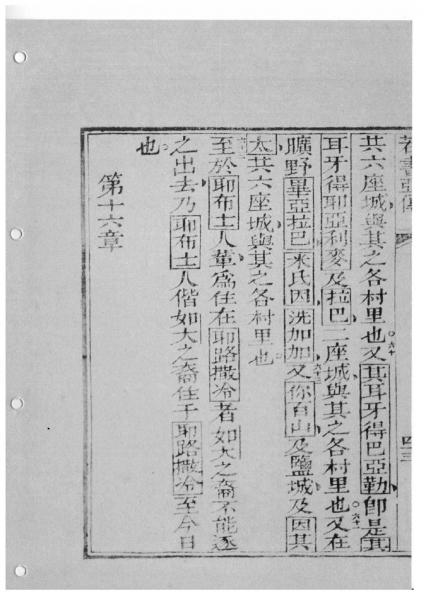 四三
共六座城與其之各村里也○六十又其耳牙得巴亞勒卽是其
耳牙得耶亞利麥及拉巴二座城與其之各村里也○六十一又在
曠野畢亞拉巴米氏因洗加加六十二又你百山及鹽城及因其
太共六座城與其之各村里也
至於耶布士人輩爲住在耶路撒冷者如大之裔不能逐
之出去乃耶布士人偕如大之裔住于耶路撒冷至今日
也
第十六章